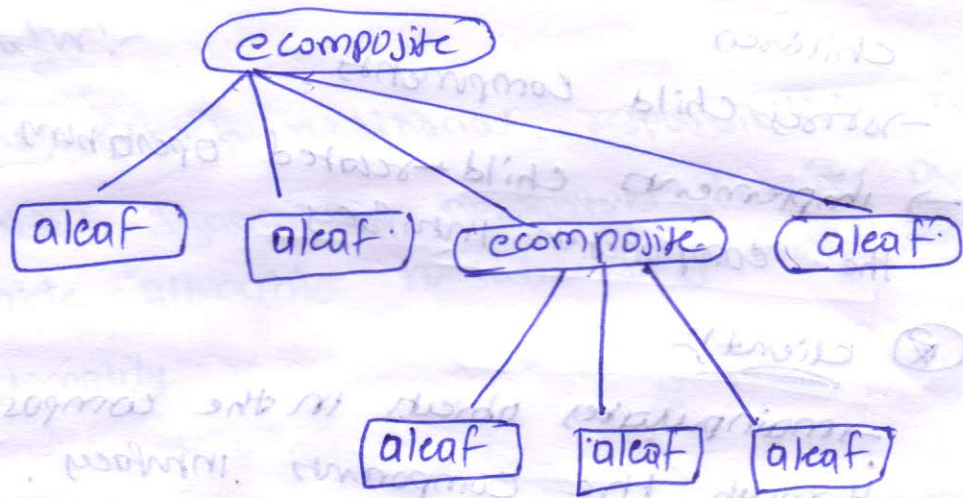 ecomposite
aleaf aleaf. ecomposite aleaf.
aleaf aleaf aleaf.